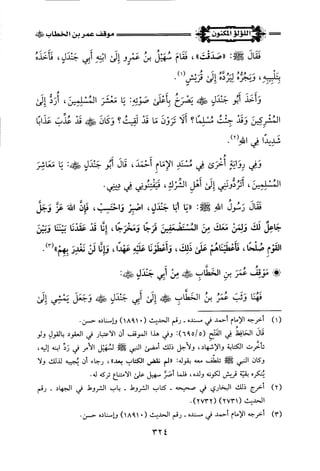 اللؤلؤ المكنون
موقف عمر بن الخطاب ﷺ
فقال ﷺ: «صدقت»، فقام سهيل بن عمرو إلى ابنه أبي جندل، فأخذه
بتلبيبه، ويجره ليرده إلى قريش (١).
وأخذ أبو جندل ﷺ يصرخ بأعلى صوته: يا معشر المسلمين، أرد إلى
المشركين وقد جئت مسلما؟ ألا ترون ما قد لقيت؟ وكان ﷺ قد عذب عذابا
شديدا في الله (٢).
وفي رواية أخرى في مسند الإمام أحمد، قال أبو جندل ﷺ: يا معاشر
المسلمين، أتردونني إلى أهل الشرك، فيفتنوني في ديني.
فقال رسول الله ﷺ: «يا أبا جندل، اصبر واحتسب، فإن الله عز وجل
جاعل لك ولمن معك من المستضعفين فرجا ومخرجا، إنا قد عقدنا بيننا وبين
القوم صلحا، فأعطيناهم على ذلك، وأعطونا عليه عهدا، وإنا لن نغدر بهم» (٣).
* موقف عمر بن الخطاب ﷺ من أبي جندل ﷺ:
فهنا وثب عمر بن الخطاب ﷺ إلى أبي جندل ﷺ وجعل يمشي إلى
(١) أخرجه الإمام أحمد في مسنده - رقم الحديث (١٨٩١٠) وإسناده حسن.
قال الحافظ في الفتح (٦٩٥/٥): وفي هذا الموقف أن الاعتبار في العقود بالقول ولو
تأخرت الكتابة والإشهاد، ولأجل ذلك أمضى النبي ﷺ لسهيل الأمر في رد ابنه إليه،
وكان النبي ﷺ تلطف معه بقوله: «لم نقض الكتاب بعد»، رجاء أن يجيبه لذلك ولا
ينكره بقية قريش لكونه ولده، فلما أصر سهيل على الامتناع تركه له.
(٢) أخرج ذلك البخاري في صحيحه - كتاب الشروط - باب الشروط في الجهاد - رقم
الحديث (٢٧٣١) (٢٧٣٢).
(٣) أخرجه الإمام أحمد في مسنده - رقم الحديث (١٨٩١٠) وإسناده حسن.
٣٢٤